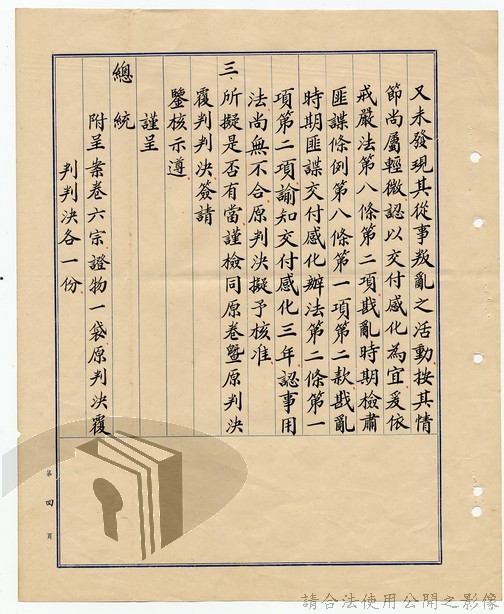 又未發現其從事叛亂之活動按其情
節尚屬輕微認以交付感化為宜爰依
戒嚴法第八條第二項戡亂時期檢肅
匪諜條例第八條第一項第二款戡亂
時期匪諜交付感化辦法第二條第一
項第二項諭知交付感化三年認事用
法尚無不合原判決擬予核准
三所擬是否有當謹檢同原卷暨原判決
覆判判決簽請
鑒核示遵
謹呈
總統
附呈案卷六宗證物一袋原判決覆
判判決各一份
第四頁
請合法使用公開之影像